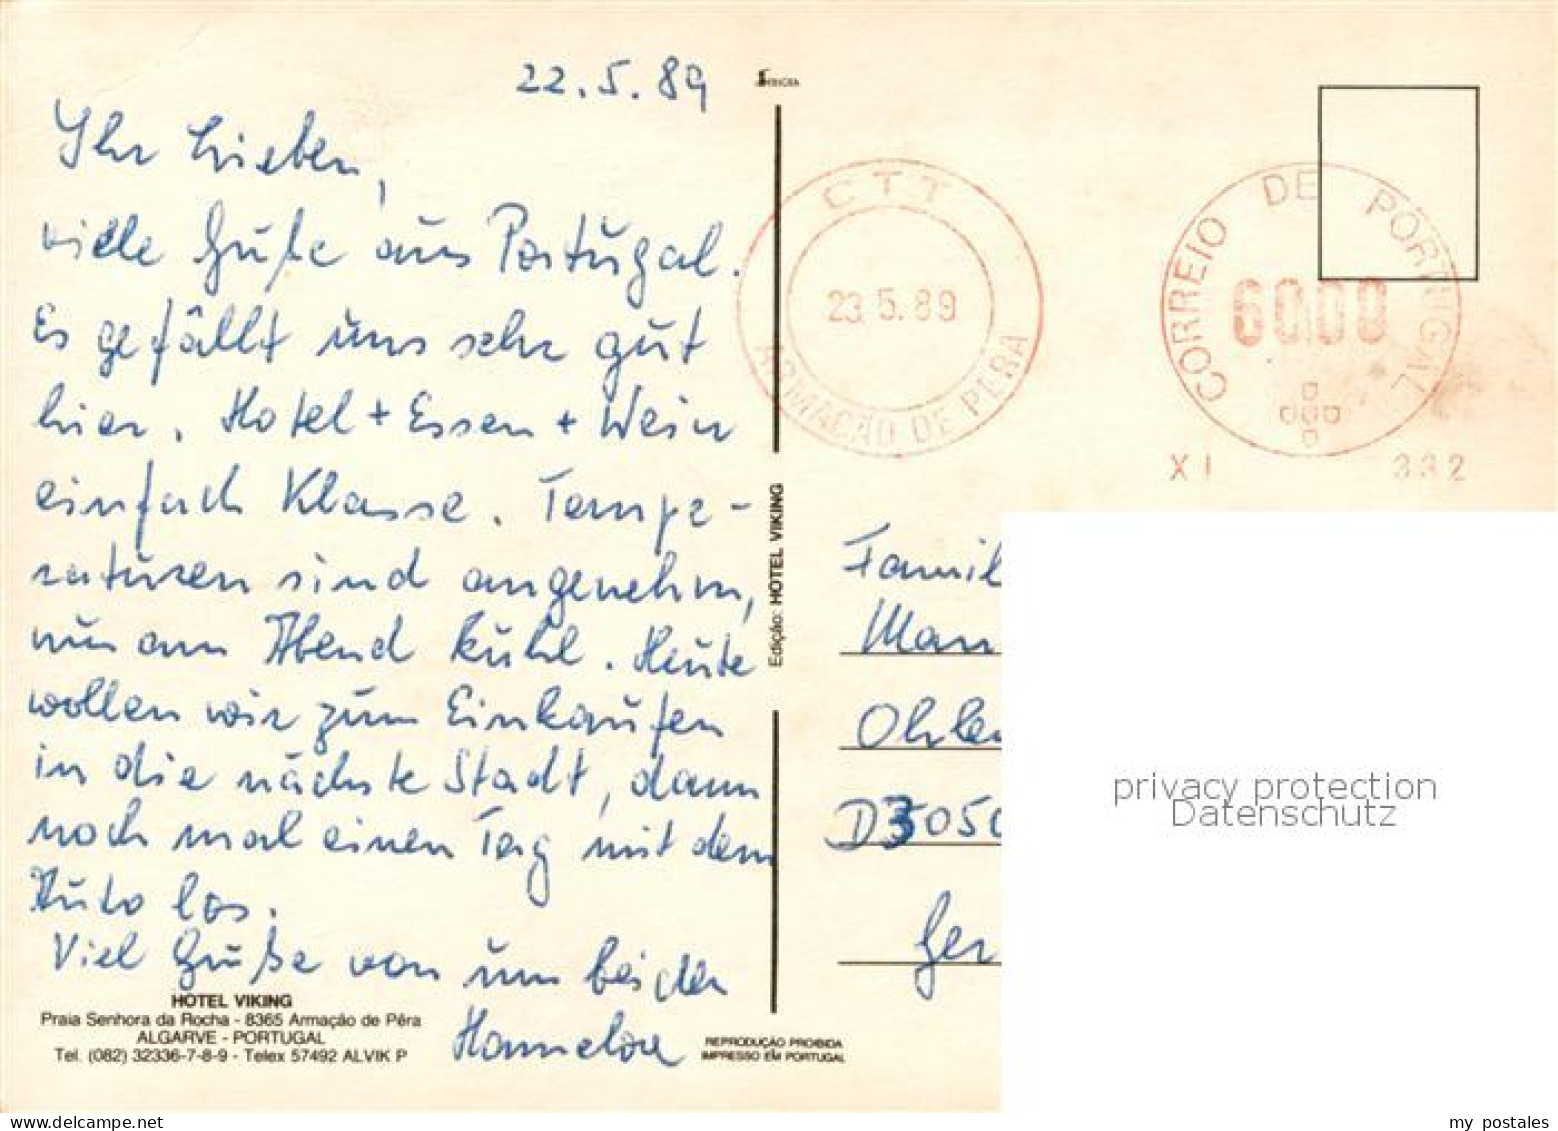 22.5.89
Ihr Lieben,
viele Grüße aus Portugal.
Es gefällt uns sehr gut
hier. Hotel + Essen + Wein
einfach Klasse. Tempe-
raturen sind angenehm,
nur am Abend kühl. Heute
wollen wir zum Einkaufen
in die nächste Stadt, dann
noch mal einen Tag mit dem
Auto los.
Viel Grüße von uns beiden
Hannelore
HOTEL VIKING
Praia Senhora da Rocha - 8365 Armação de Pêra
ALGARVE - PORTUGAL
Tel. (082) 32336-7-8-9 - Telex 57492 ALVIK P
Edição: HOTEL VIKING
REPRODUÇÃO PROIBIDA
IMPRESSO EM PORTUGAL
CTT
23.5.89
ARMAÇÃO DE PERA
CORREIO DE PORTUGAL
60.00
XI 332
Famil
Man
Ohle
D3050
Ger
privacy protection
Datenschutz
my postales